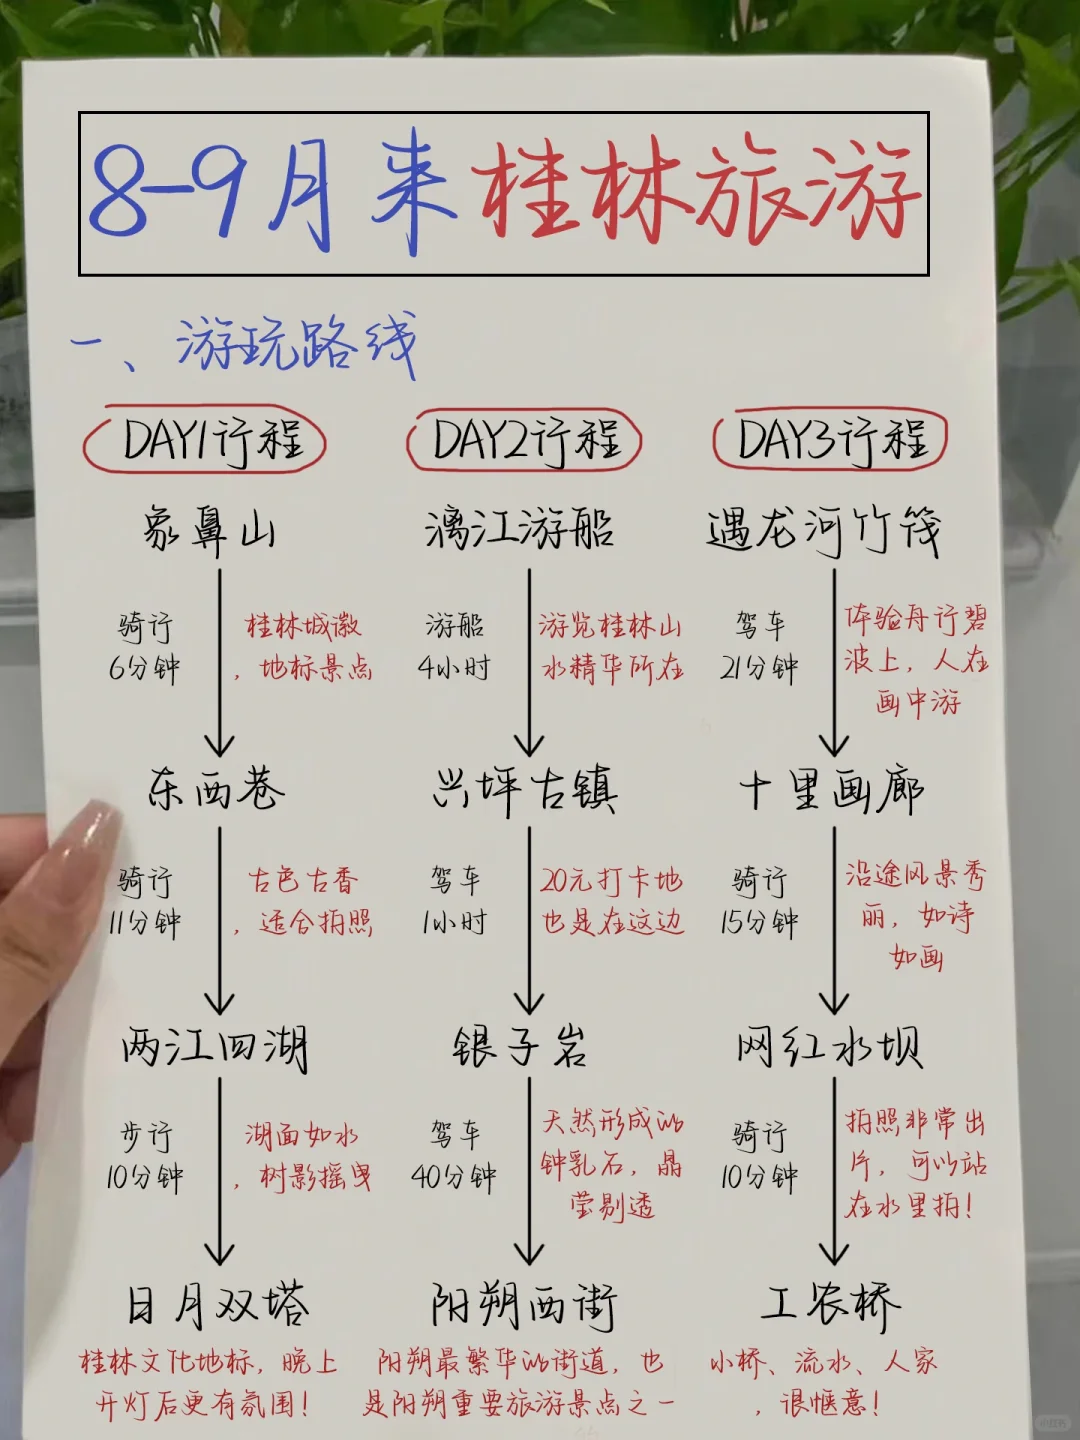 8-9月来桂林旅游
一、游玩路线
DAY1行程
象鼻山
骑行
6分钟
桂林城徽
，地标景点
东西巷
骑行
11分钟
古色古香
，适合拍照
两江四湖
步行
10分钟
湖面如水
，树影摇曳
日月双塔
桂林文化地标，晚上
开灯后更有氛围！
DAY2行程
漓江游船
游船
4小时
游览桂林山
水精华所在
兴坪古镇
驾车
1小时
20元打卡地
也是在这边
银子岩
驾车
40分钟
天然形成的
钟乳石，晶
莹剔透
阳朔西街
阳朔最繁华的街道，也
是阳朔重要旅游景点之一
DAY3行程
遇龙河竹筏
驾车
21分钟
体验舟行碧
波上，人在
画中游
十里画廊
骑行
15分钟
沿途风景秀
丽，如诗
如画
网红水坝
骑行
10分钟
拍照非常出
片，可以站
在水里拍！
工农桥
小桥、流水、人家
，很惬意！
小红书